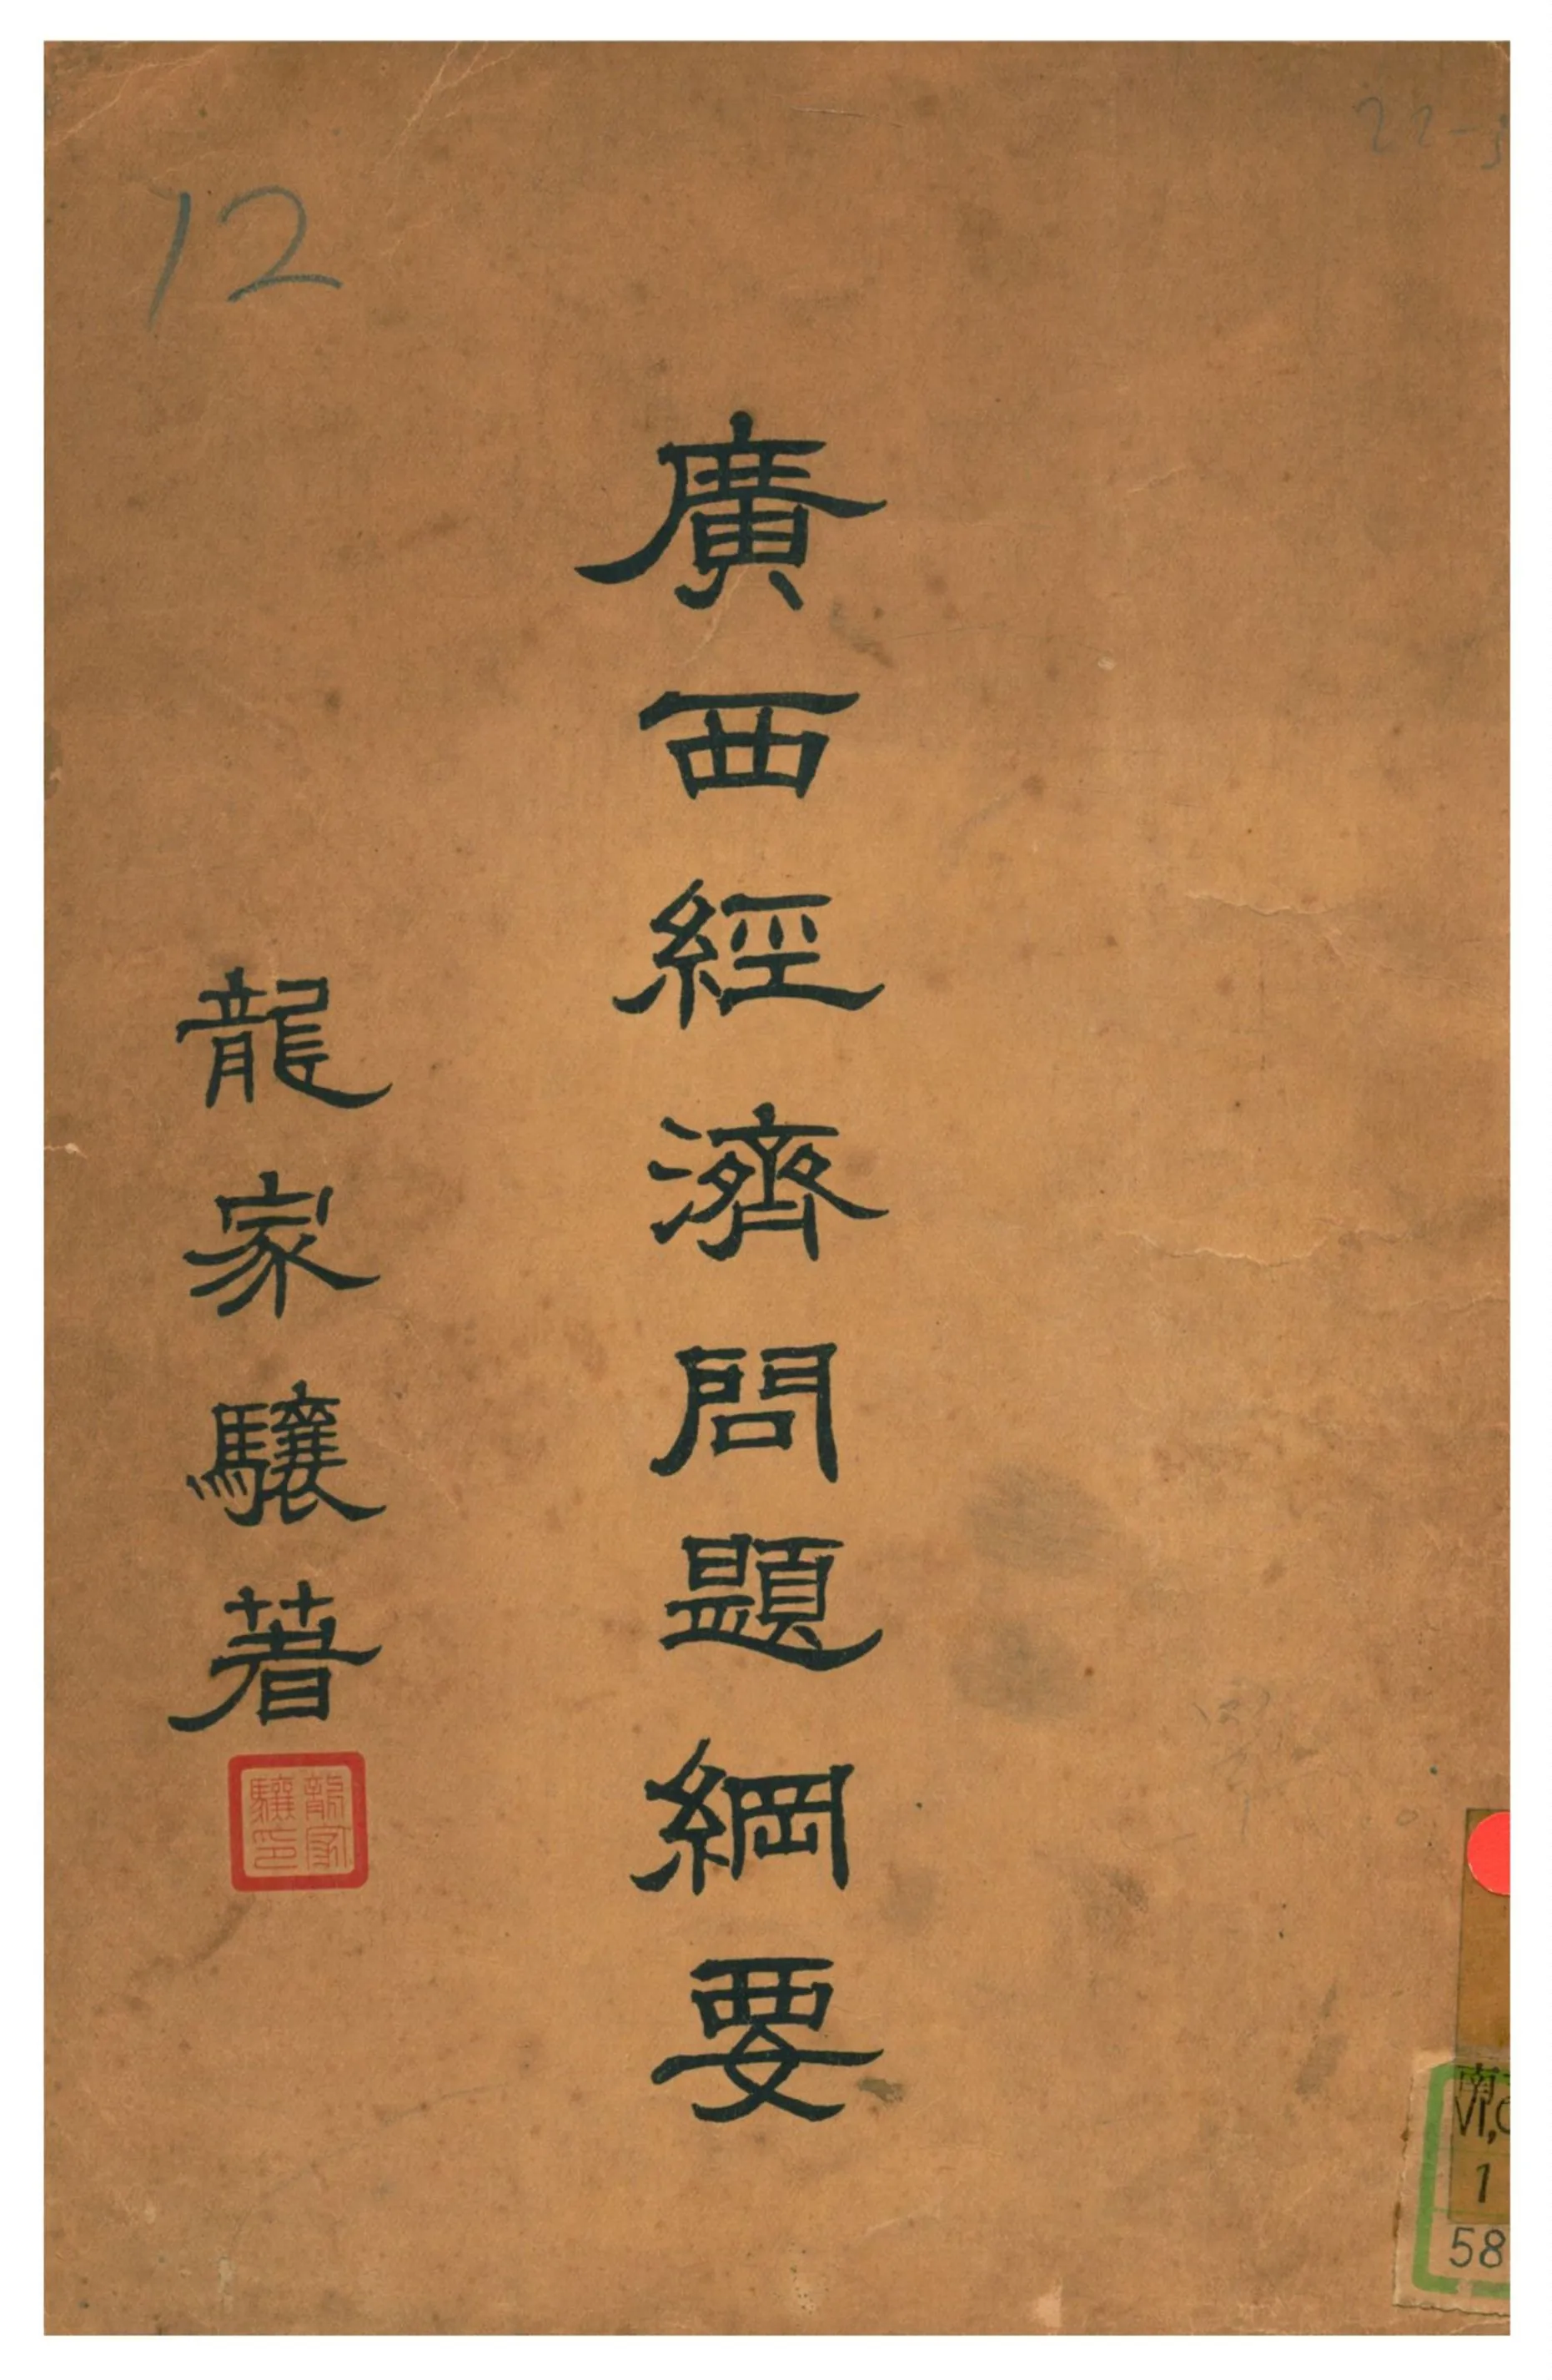 22-
12
廣西經濟問題綱要
龍家驤著
龍家
驤印
南
VI,
1
58